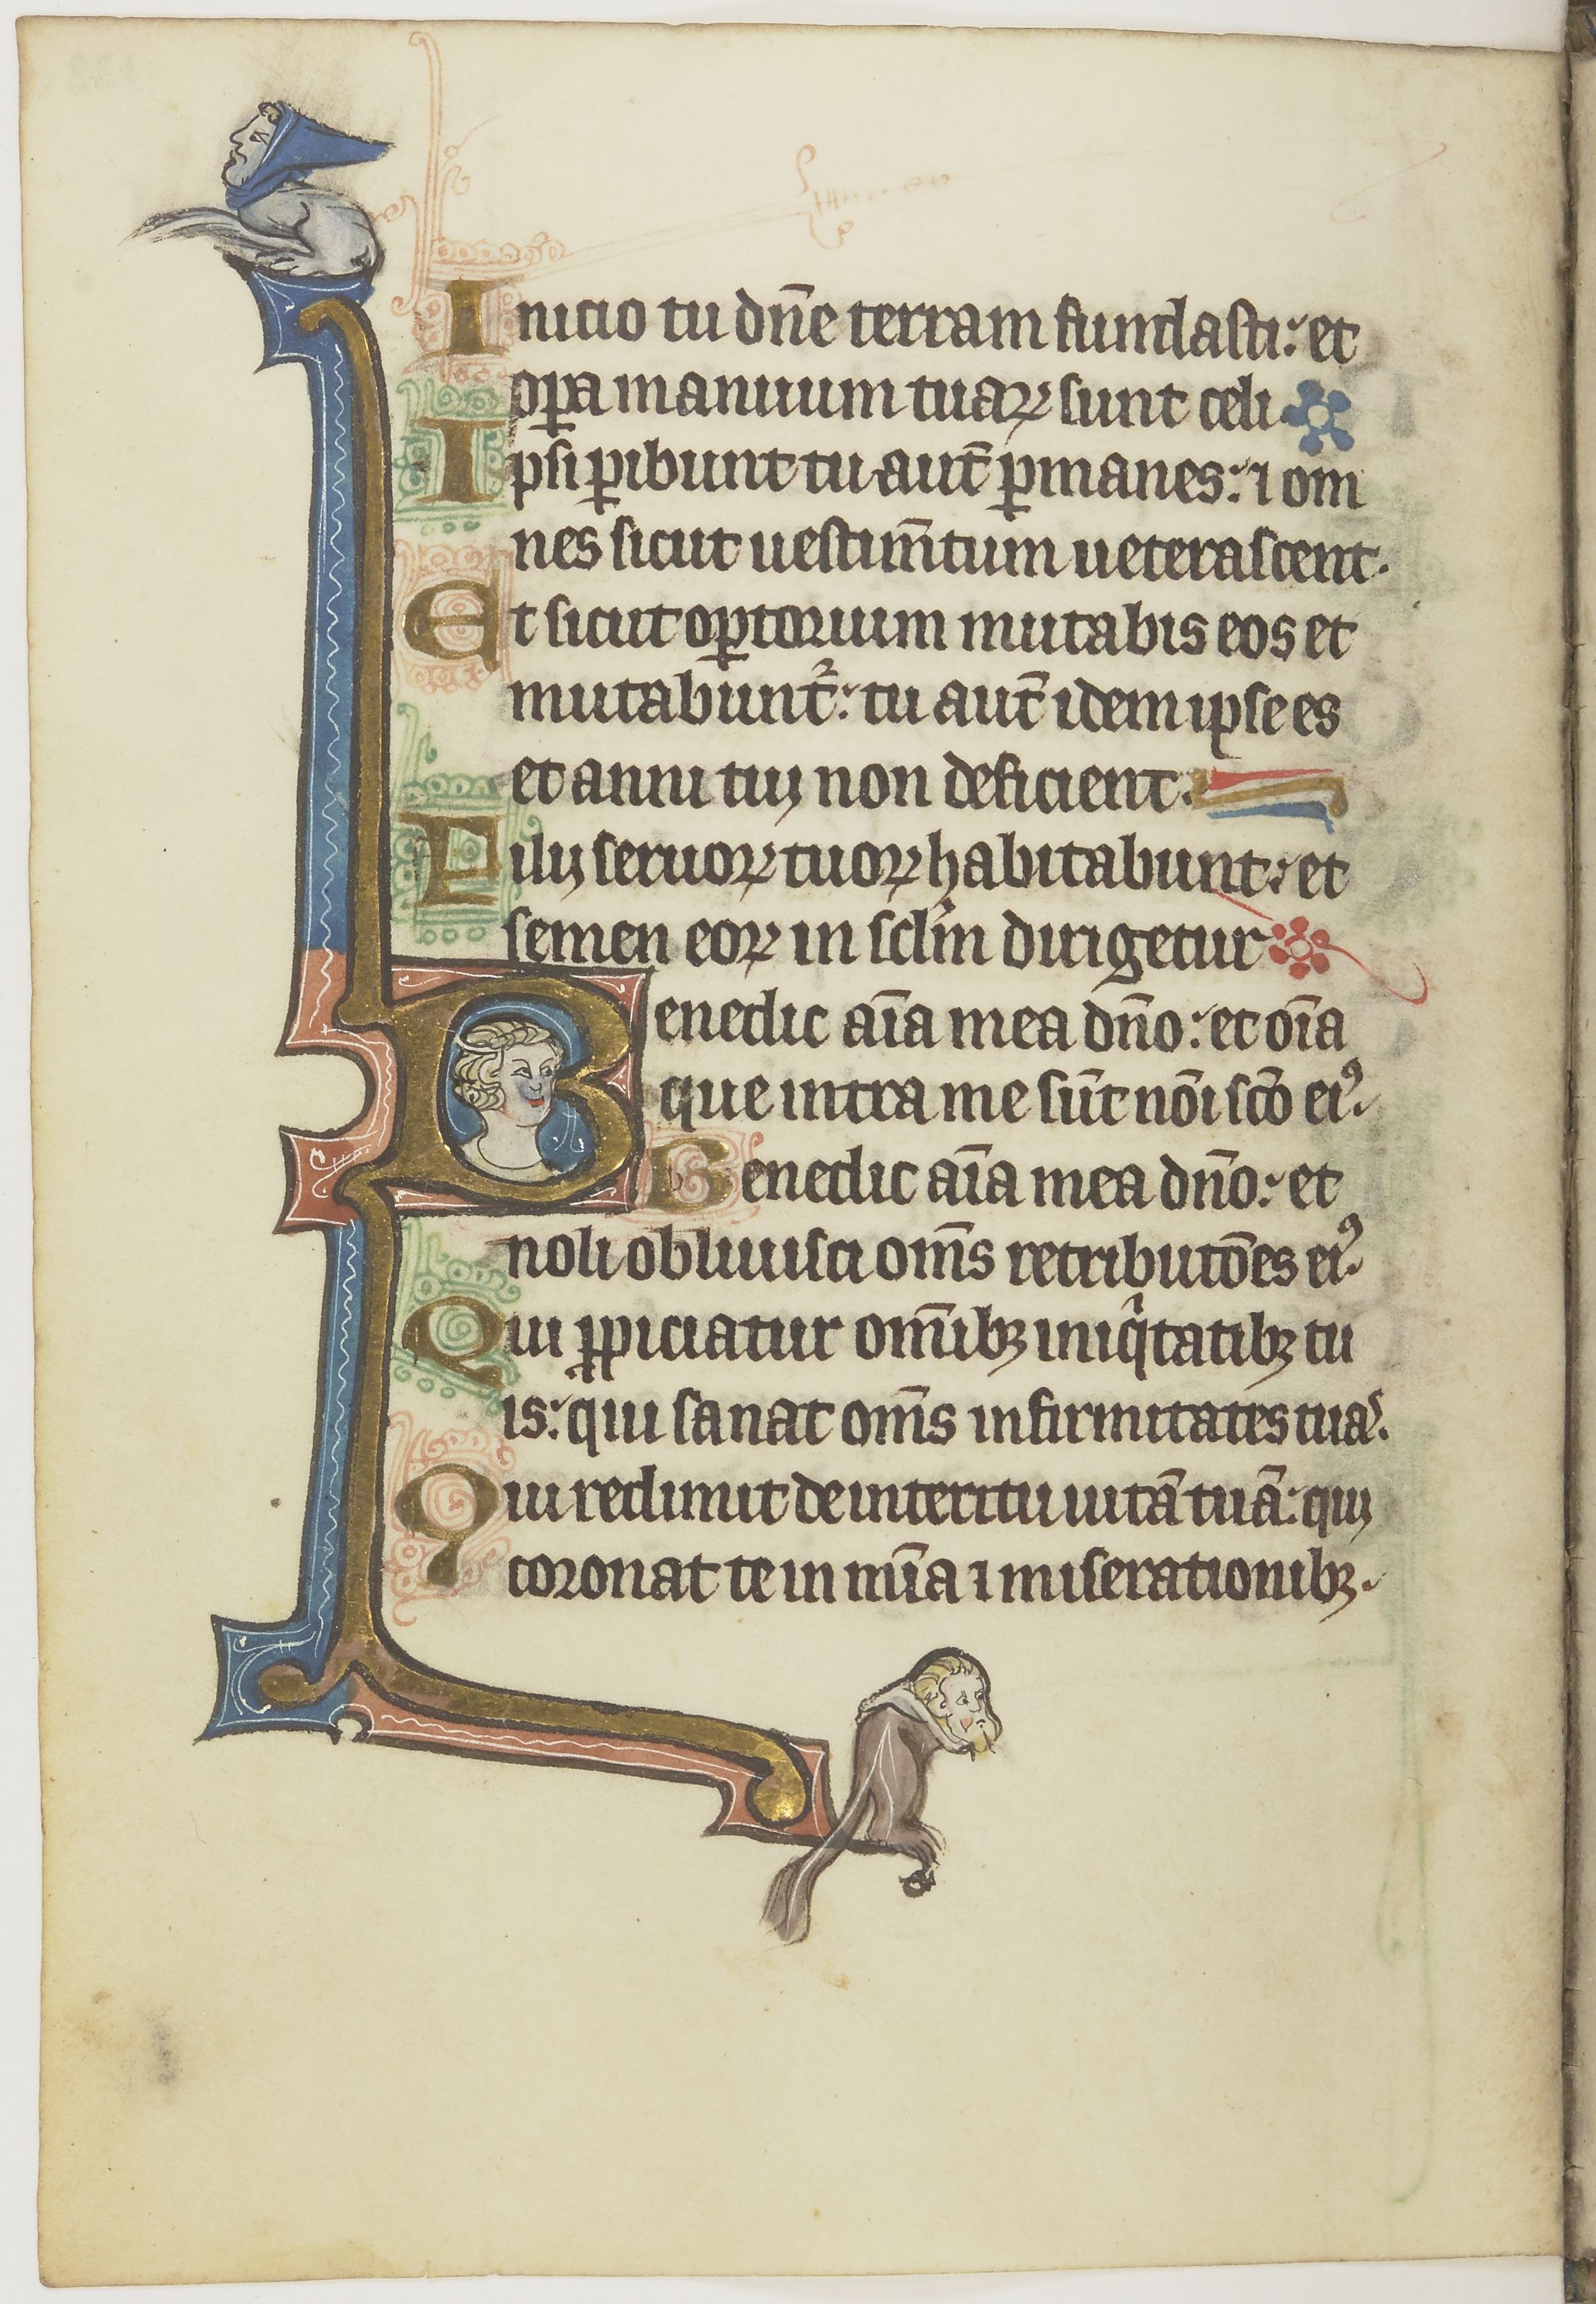 Inicio tu dn̄e terram fundasti: et
oꝑa manuum tuaꝝ sunt celi
Ipsi ꝑibunt tu aut̄ ꝑmanes: ⁊ om
nes sicut uestim̄tum ueterascent.
Et sicut oꝑtorium mutabis eos et
mutabunt᷑: tu aut̄ idem ipse es
et anni tuij non deficient.
Filij seruoꝝ tuoꝝ habitabunt: et
semen eoꝝ in sclm̄ dirigetur
Benedic aīa mea dn̄o: et oīa
que intra me sūt nōi sc̄o eiꝰ.
Benedic aīa mea dn̄o: et
noli obliuisci om̄s retributōes eiꝰ.
Qui ꝓpiciatur om̄ibꝫ iniqͥtatibꝫ tu
is: qui sanat om̄s infirmitates tuas.
Qui redimit de interitu uitā tuā: qui
coronat te in mīa ⁊ miserationibꝫ.